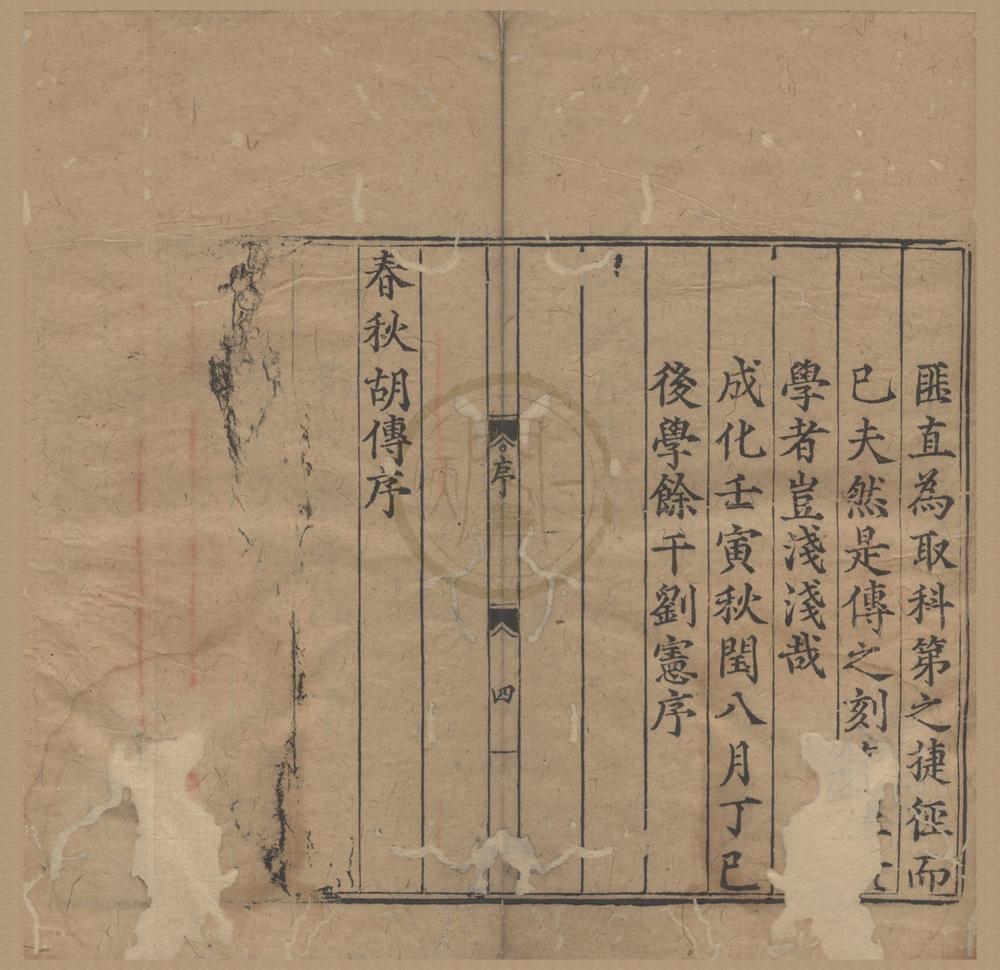 匪直為取科第之捷徑而
已夫然是傳之刻
學者豈淺淺哉
成化壬寅秋閏八月丁巳
後學餘干劉憲序
序
四
春秋胡傳序